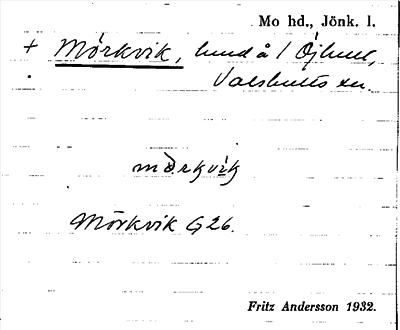 Mo hd., Jönk. l.
+ Mörkvik, hund å / Öjhult,
Valshults sn.
mörkvik
Mörkvik G 26.
Fritz Andersson 1932.